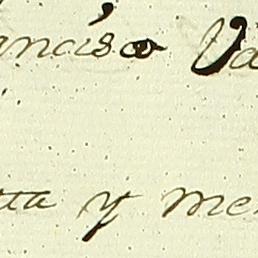 ancisco Va
tta y me